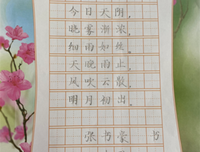 今日天阴，
晚雾渐浓，
细雨如丝，
天晚雨止，
风吹云散，
明月初出。
张书豪 书